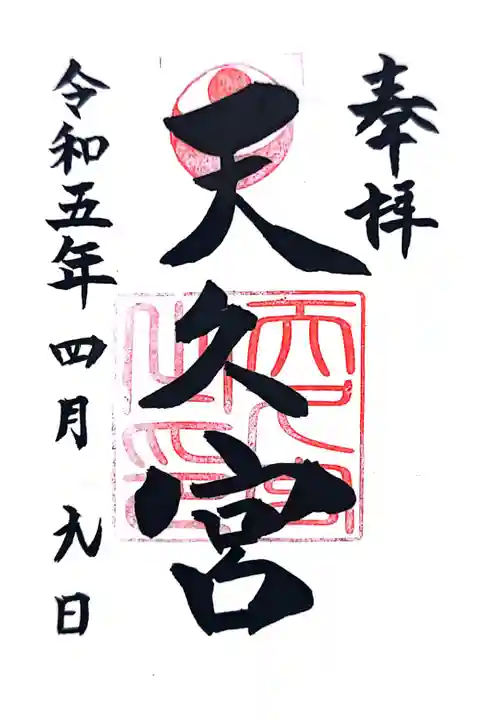 奉拝
天久宮
令和五年四月九日